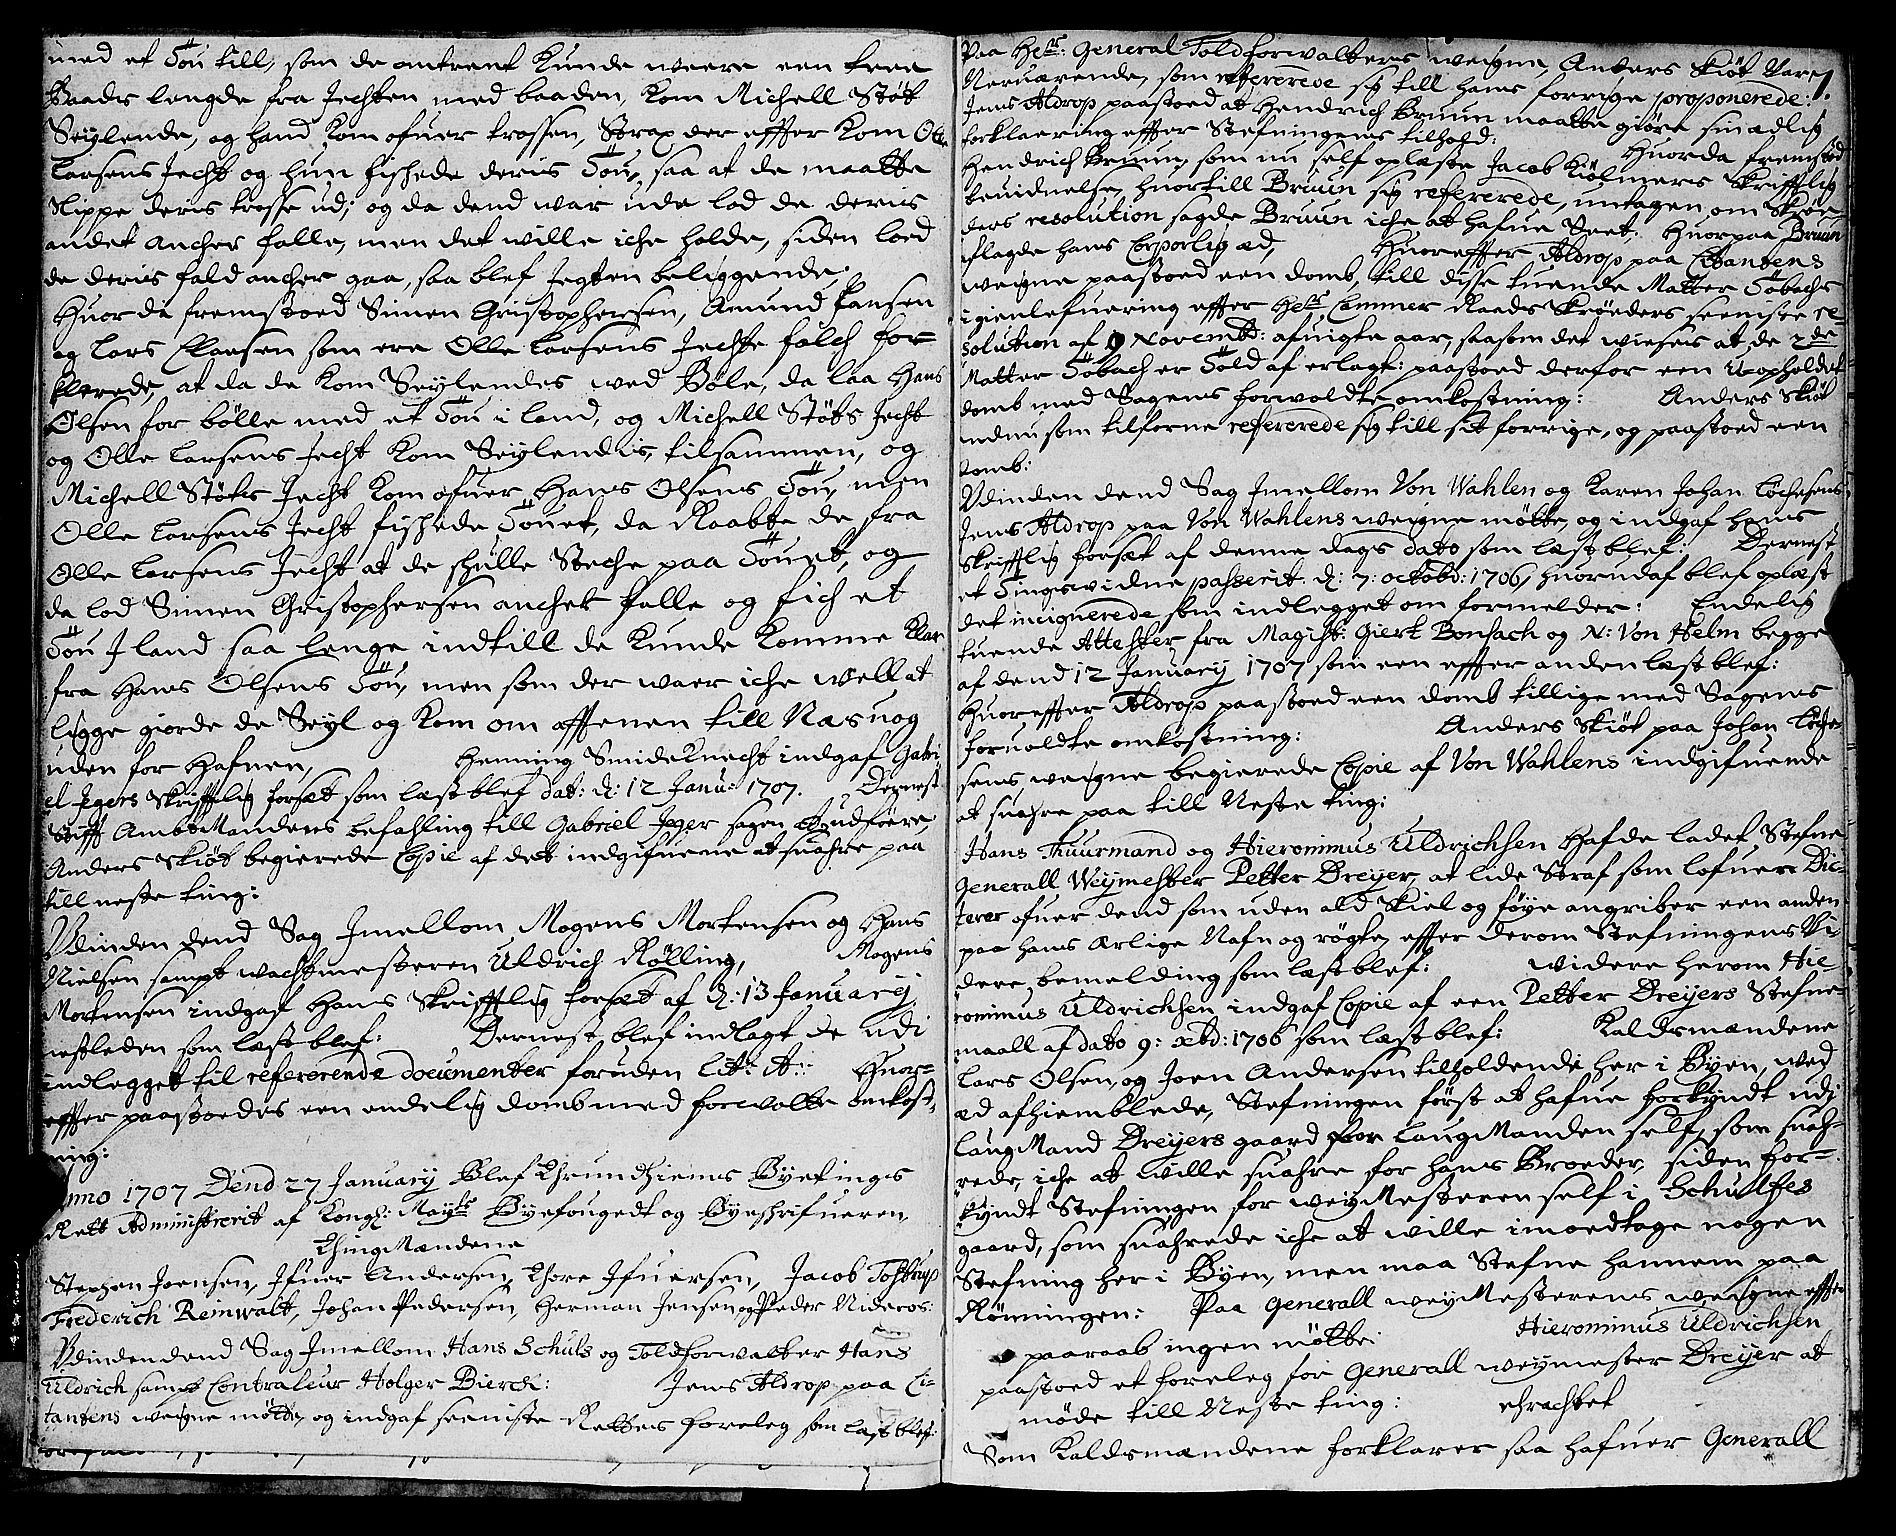 med et Töu till, som de omtrent kunde weere een tree
Baads lengde fra Jechten med baaden, kom Michell Støt
Seylende, og hand kom ofuer trossen, Strax der effter kom Olle
Larsens Jecht og hun fishede deris Töu, saa at de maatte
Slippe deris trosse ud; og da dend war ude lod de deris
andet ancher falle, men det wille iche holde, siden loed
de deris fald ancher gaa, saa blef Jegten beliggende.
Huor da fremstoed Simen Christophersen, Amund Hansen
og Lars Claesen som ere Olle Larsens Jechte folch for-
klarede, at da de kom Seylendes wed Bøle, da laa Hans
Olsen for bölle med et Töu i land, og Michell Støts Jecht
og Olle Larsens Jecht kom Seylendis, tilsammen, og
Michell Støts Jecht kom ofuer Hans Olsens Töu, men
Olle Larsens Jecht fishede Töuet, da Raabte de fra
Olle Larsens Jecht at de shulle Steche paa Töuet, og
da lod Simen Christophersen ancher falle og fich et
Töu I land saa lenge indtill de kunde komme klar
fra Hans Olsens Töu, men som der waer iche well at
ligge giorde de Seyl og kom om afftenen till Næsuog
uden for Hafnen, Henning Smideknecht indgaf Gabri
el Jegers Skrifftlig forsæt som læst blef dat: d: 12 Janu: 1707. Dernest
Stifft AmbtMandens befahling till Gabriel Jeger sagen at udføere,
Anders Skiöt begierede Copie af det indgifuene at suahre paa
till neste ting:
Udinden dend Sag Imellom Mogens Mortensen og Hans
Nielsen sampt wachtmesteren Uldrich Rölling, Mogens
Mortensen indgaf hans Skrifftlig forsæt af d: 13 January
nestleden som læst blef: Dernest blef indlagt de udi
indlegget til refererende documenter foruden Lit: A: Huor-
effter paastoedes een endelig domb med forvolte omkost-
ning:
Anno 1707 Dend 27 January Blef Thrundhiems Byetings
Rett Administrerit af Kongl: Mayts Byefougedt og Byeshrifueren,
ThingMændene
Stephen Joensen, Ifuer Andersen, Thore Ifuersen, Jacob Tostrup
Frederich Reinwalt, Johan Pedersen, Herman Jensen og Peder Nideros:
Udinden dend Sag Imellom Hans Schults og Toldforwalter Hans
Uldrich sambt Contraleur Holger Bierck: Jens Aldrop paa Ci-
tantens weigne mötte, og indgaf seeniste Rettens foreleg som læst blef.
Paa Hr: General Toldforwalterens weigne, Anders Skiöt Var 1.
Neruærende, som refererede sig till hans forrige proponerede:
Jens Aldrop paastoed at Hendrich Bruun maatte giøre sin ædlig
forklaering effter Stefningens tilhold: Huorda fremstod
Hendrich Bruun, som nu self oplæste Jacob Kiölners Skrifftlig
tienidnelse, huortill Bruun sig refererede, untagen om Skröe-
ders resolution sagde Bruun iche at hafue Seet; Huorpaa Bruun
aflagde hans Corporlig æd, Huoreffter Aldrop paa Citantens
weigne paastoed een domb, till disse tuende Matter Töbachs
igienlefuering effter Hr: Cammer Raads Skröeders seeniste re-
solution af 9 Novembr: afuigte aar, saasom det wieses at de 2de
Matter Töbach er Töld af erlagt: paastoed derfor een Uopholdet
domb med Sagens forwoldte omkostning: Anders Skiöt
endnu som tilforne refererede sig till sit forrige, og paastoed een
domb:
Udinden dend Sag Imellom Von Wahlen og Karen Johan Löchesens
Jens Aldrop paa Von Wahlens weigne mötte, og indgaf hans
Skrifftlig forsæt af denne dags dato som læst blef: Dernest
et Tingsvidne passerit d: 7: octobr: 1706, huorudaf blef oplæst
det incignerede som indlegget om formelder: Endelig
tuende Attester fra Magist: Giert Bonsach og N: Von Helm begge
af dend 12 January 1707 som een effter anden læst blef:
Huoreffter Aldrop paastoed een domb tillige med Sagens
foruoldte omkostning: Anders Skiöt paa Johan Löche-
sens weigne begierede Copie af Von Wahlens indgifuende
at suahre paa till Neste ting:
Hans Thuurmand og Hieronimus Uldrichsen Hafde ladet Stefne
Generall Weymester Petter Dreyer, at lide Straf som lofuen Dic-
terer ofuer dend som uden ald Skiel og föye angriber een anden
paa hans ærlige Nafn og røgte, effter derom Stefningens Vi-
dere bemelding som læst blef: Widere herom Hie-
ronimus Uldrichsen indgaf Copie af een Petter Dreyers Stefne-
maall af dato 9: xbr: 1706 som læst blef: Kaldsmændene
Lars Olsen, og Joen Andersen tilholdende her i Byen, wed
æd afhiemblede, Stefningen først at hafue forkyndt udi
LaugMand Dreyers gaard for LaugManden self, som suah-
rede, iche at wille suahre for hans Broeder, siden for-
kyndt Stefningen for weyMesteren self i Schultzes
gaard, som suahrede iche at wille imoedtage nogen
Stefning her i Byen, men maa Stefne hannem paa
Rönningen: Paa Generall weyMesterens weigne effter
paaraab ingen mötte: Hieronimus Uldrichsen
paastoed et foreleg for Generall weymester Dreyer at
möde till Neste ting: Erachtet
Som Kaldsmændene forklarer saa hafuer Generall